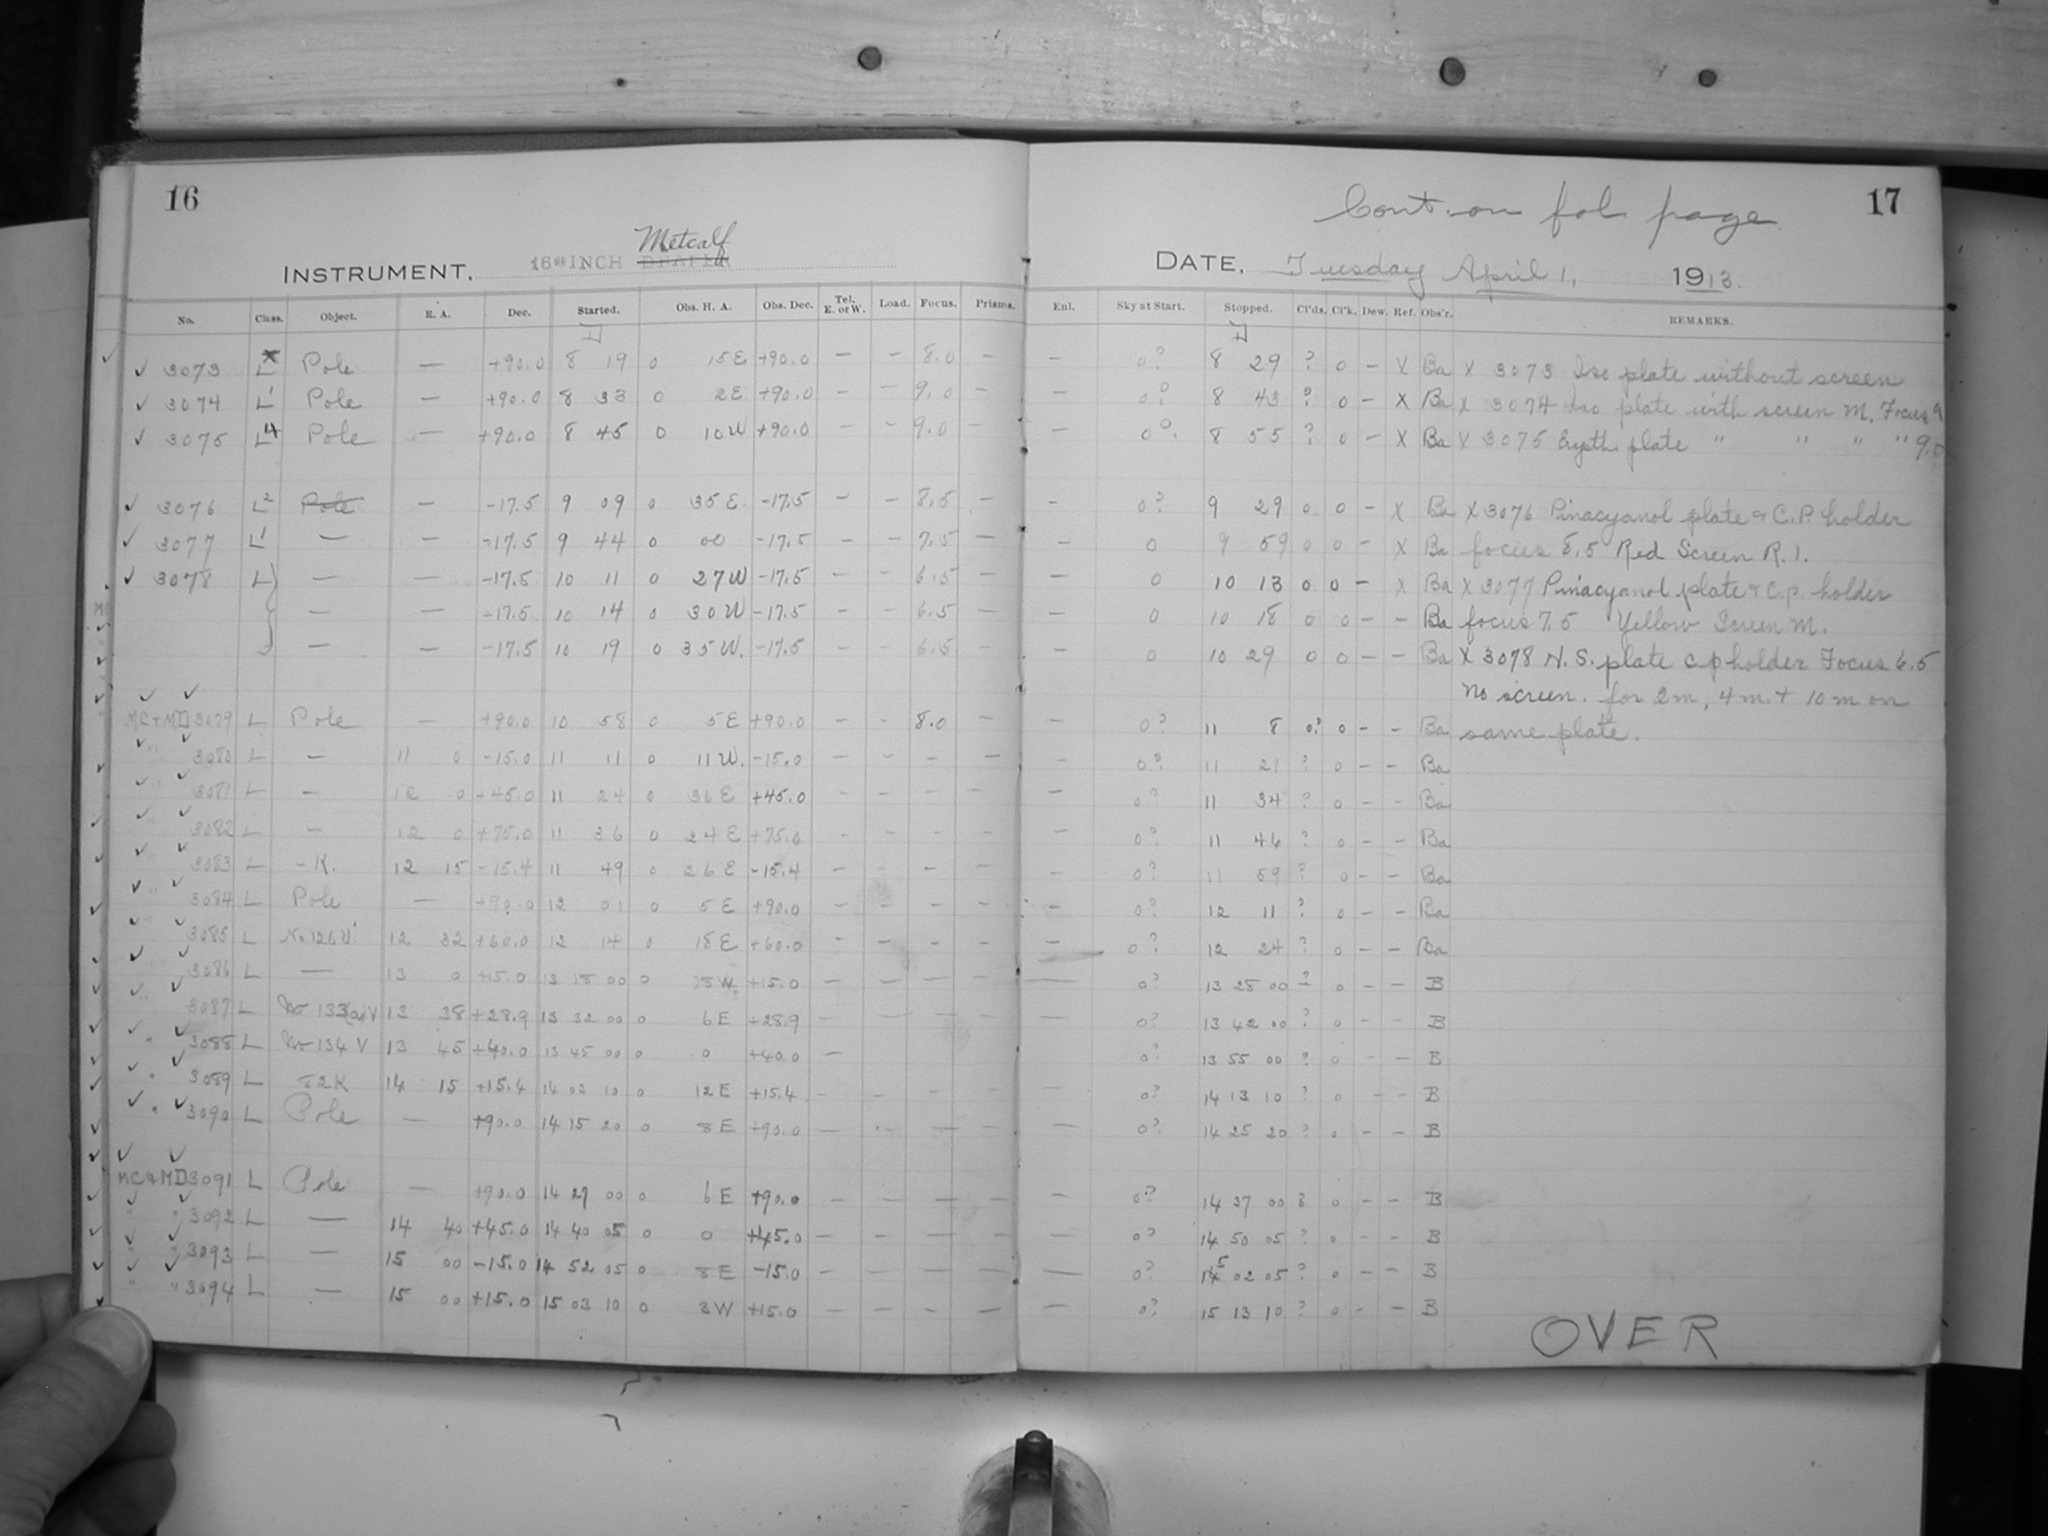 16
17
Cont. on fol. page
INSTRUMENT. 16 INCH DRAPER Metcalf
DATE, Tuesday April 1, 1913.
No. Class. Object. R. A. Dec. Started. Obs. H. A. Obs. Dec. Tel. E. or W. Load. Focus. Prisms. Enl. Sky at Start. Stopped. Cl'ds. Cl'k. Dew. Ref. Obs'r. REMARKS.
✓ 3073 L Pole — +90.0 8 19 0 15 E +90.0 — – 8.0 — — 0? 8 29 ? 0 – X Ba X 3073 Iso plate without screen
✓ 3074 L1 Pole — +90.0 8 33 0 2E +90.0 — – 9.0 — — 0? 8 43 ? 0 – X Ba X 3074 Iso plate with screen M. Focus 9
✓ 3075 L4 Pole — +90.0 8 45 0 10W +90.0 — – 9.0 — — 0?. 8 55 ? 0 – X Ba X 3075 Eryth plate " " " " 9.0
✓ 3076 L2 Pole — -17.5 9 09 0 35 E -17.5 — – 8.5 — — 0? 9 29 0 0 – X Ba X 3076 Pinacyanol plate & C.P. holder
✓ 3077 L1 — — -17.5 9 44 0 00 -17.5 — – 7.5 — — 0 9 59 0 0 – X Ba focus 8.5 Red Screen R. 1.
✓ 3078 L — — -17.5 10 11 0 27W -17.5 — – 6.5 — — 0 10 13 0 0 – X Ba X 3077 Pinacyanol plate & C.p. holder
— — -17.5 10 14 0 30W -17.5 — – 6.5 — — 0 10 18 0 0 – – Ba focus 7.5 Yellow Screen M.
— — -17.5 10 19 0 35W. -17.5 — – 6.5 — — 0 10 29 0 0 – – Ba X 3078 N. S. plate c p holder Focus 6.5
No screen. for 2m, 4m. + 10 m on
MC+MD 3079 L Pole — +90.0 10 58 0 5E +90.0 — – 8.0 — — 0? 11 8 0? 0 – – Ba same plate.
" 3080 L — 11 0 -15.0 11 11 0 11W. -15.0 — – – — — 0? 11 21 ? 0 – – Ba
" 3081 L — 12 0 +45.0 11 24 0 36 E +45.0 — – – — — 0? 11 34 ? 0 – – Ba
" 3082 L — 12 0 +75.0 11 36 0 24 E +75.0 — – – — — 0? 11 46 ? 0 – – Ba
" 3083 L – K. 12 15 -15.4 11 49 0 26 E -15.4 — – – — — 0? 11 59 ? 0 – – Ba
" 3084 L Pole — +90.0 12 01 0 5 E +90.0 — – – — — 0? 12 11 ? 0 – – Ba
" 3085 L No 126 V. 12 32 +60.0 12 14 0 18 E +60.0 — – – — — 0? 12 24 ? 0 – – Ba
" 3086 L — 13 0 +15.0 13 15 00 0 W. +15.0 — — — — — 0? 13 25 00 ? 0 – – B
" 3087 L No 133(a) V 13 38 +28.9 13 32 00 0 6 E +28.9 — — — — — 0? 13 42 00 ? 0 – – B
" 3088 L No 134 V 13 45 +40.0 13 45 00 0 0 +40.0 — 0? 13 55 00 ? 0 – – B
" 3089 L 82K 14 15 +15.4 14 03 10 0 12E +15.4 – – — — — 0? 14 13 10 ? 0 – – B
" 3090 L Pole — +90.0 14 15 20 0 8 E +90.0 — – — — — 0? 14 25 20 ? 0 – – B
MC&MD 3091 L Pole — +90.0 14 27 00 0 6 E +90.0 — — — — — 0? 14 37 00 ? 0 – – B
" " 3092 L — 14 40 +45.0 14 40 05 0 0 +45.0 — — — — — 0? 14 50 05 ? 0 – – B
" " 3093 L — 15 00 -15.0 14 52 05 0 8 E -15.0 — — — — — 0? 15 02 05 ? 0 – – B
" " 3094 L — 15 00 +15.0 15 03 10 0 3W +15.0 — — — — — 0? 15 13 10 ? 0 – – B
OVER